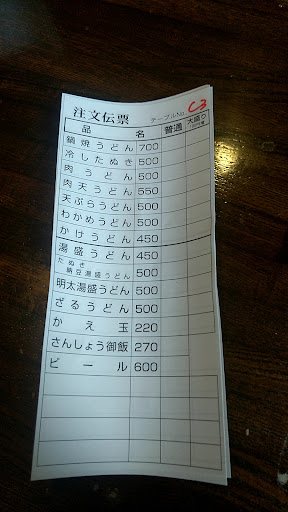 注文伝票 テーブルNo. C3
品 名 普通 大盛り
鍋焼うどん 700
冷したぬき 500
肉うどん 500
肉天うどん 550
天ぷらうどん 500
わかめうどん 500
かけうどん 450
湯盛うどん 450
たぬき
納豆湯盛うどん 500
明太湯盛うどん 500
ざるうどん 500
かえ玉 220
さんしょう御飯 270
ビール 600